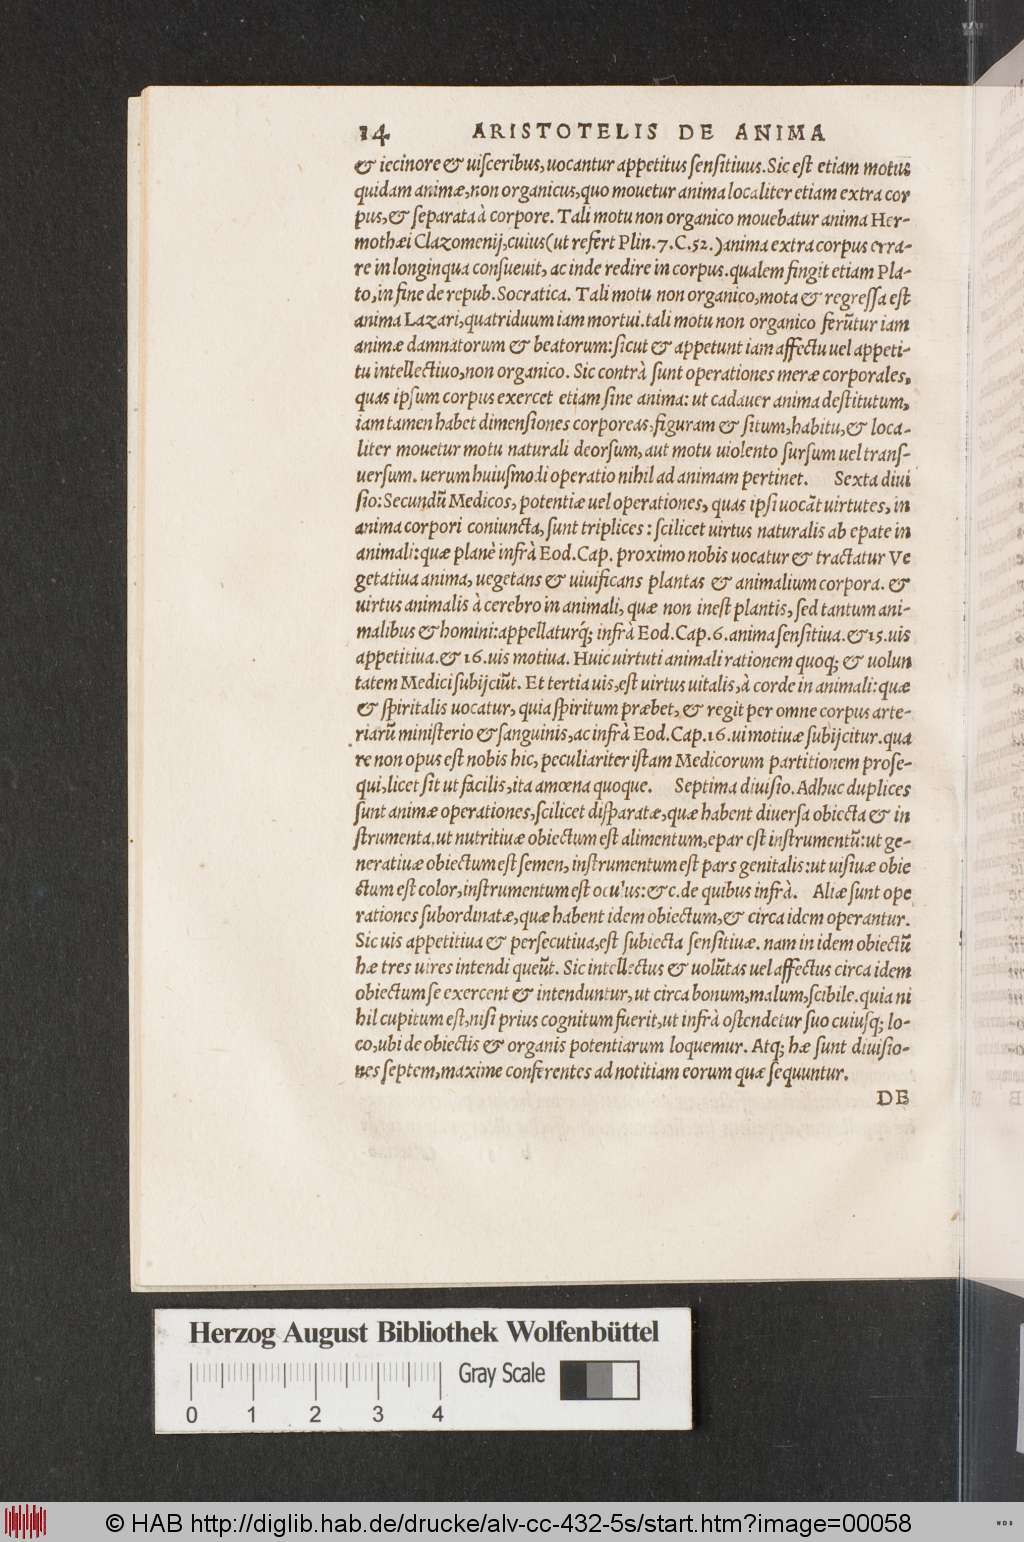 14 ARISTOTELIS DE ANIMA
& iecinore & uisceribus, uocantur appetitus sensitiuus. Sic est etiam motus
quidam animæ, non organicus, quo mouetur anima localiter etiam extra cor
pus, & separata à corpore. Tali motu non organico mouebatur anima Her-
mothæi Clazomenij, cuius (ut refert Plin. 7. C. 52.) anima extra corpus erra-
re in longinqua consueuit, ac inde redire in corpus. qualem fingit etiam Pla-
to, in fine de repub. Socratica. Tali motu non organico, mota & regressa est
anima Lazari, quatriduum iam mortui. tali motu non organico ferũtur iam
animæ damnatorum & beatorum: sicut & appetunt iam affectu uel appeti-
tu intellectiuo, non organico. Sic contrà sunt operationes meræ corporales,
quas ipsum corpus exercet etiam sine anima: ut cadauer anima destitutum,
iam tamen habet dimensiones corporeas, figuram & situm, habitu, & loca-
liter mouetur motu naturali deorsum, aut motu uiolento sursum uel trans-
uersum. uerum huiusmodi operatio nihil ad animam pertinet. Sexta diui
sio: Secundũ Medicos, potentiæ uel operationes, quas ipsi uocãt uirtutes, in
anima corpori coniuncta, sunt triplices: scilicet uirtus naturalis ab epate in
animali: quæ planè infrà Eod. Cap. proximo nobis uocatur & tractatur Ve
getatiua anima, uegetans & uiuificans plantas & animalium corpora. &
uirtus animalis à cerebro in animali, quæ non inest plantis, sed tantum ani-
malibus & homini: appellaturq́; infrà Eod. Cap. 6. anima sensitiua. & 15. uis
appetitiua. & 16. uis motiua. Huic uirtuti animali rationem quoq; & uolun
tatem Medici subijciũt. Et tertia uis, est uirtus uitalis, à corde in animali: quæ
& spiritalis uocatur, quia spiritum præbet, & regit per omne corpus arte-
riarũ ministerio & sanguinis, ac infrà Eod. Cap. 16. ui motiuæ subijcitur. qua
re non opus est nobis hic, peculiariter istam Medicorum partitionem prose-
qui, licet sit ut facilis, ita amœna quoque. Septima diuisio. Adhuc duplices
sunt animæ operationes, scilicet disparatæ, quæ habent diuersa obiecta & in
strumenta. ut nutritiuæ obiectum est alimentum, epar est instrumentũ: ut ge-
neratiuæ obiectum est semen, instrumentum est pars genitalis: ut uisiuæ obie
ctum est color, instrumentum est oculus: & c. de quibus infrà. Aliæ sunt ope
rationes subordinatæ, quæ habent idem obiectum, & circa idem operantur.
Sic uis appetitiua & persecutiua, est subiecta sensitiuæ. nam in idem obiectũ
hæ tres uires intendi queũt. Sic intellectus & uolũtas uel affectus circa idem
obiectum se exercent & intenduntur, ut circa bonum, malum, scibile. quia ni
hil cupitum est, nisi prius cognitum fuerit, ut infrà ostendetur suo cuiusq; lo-
co, ubi de obiectis & organis potentiarum loquemur. Atq; hæ sunt diuisio-
nes septem, maxime conferentes ad notitiam eorum quæ sequuntur.
DE
Herzog August Bibliothek Wolfenbüttel
Gray Scale
0 1 2 3 4
© HAB http://diglib.hab.de/drucke/alv-cc-432-5s/start.htm?image=00058